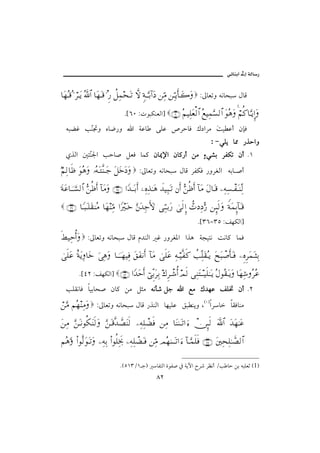 رسالة إلى ابنتي
قال سبحانه وتعالى: ﴿ وَكَأَيِّن مِّن دَآبَّةٍ لَّا تَحْمِلُ رِزْقَهَا ٱللَّهُ يَرْزُقُهَا
وَإِيَّاكُمْ ۚ وَهُوَ ٱلسَّمِيعُ ٱلْعَلِيمُ ﴾ [العنكبوت: ٦٠].
فإن أعطيتَ مرادك فاحرص على طاعة الله ورضاه وتجنَّب غضبه
واحذر مما يلي-:
١. أن تكفر بشيءٍ من أركان الإيمان كما فعل صاحب الجنَّتَين الذي
أصابه الغرور فكفر قال سبحانه وتعالى: ﴿ وَدَخَلَ جَنَّتَهُۥ وَهُوَ ظَالِمٌ
لِّنَفْسِهِۦ قَالَ مَآ أَظُنُّ أَن تَبِيدَ هَٰذِهِۦٓ أَبَدًا ۝ وَمَآ أَظُنُّ ٱلسَّاعَةَ
قَآئِمَةً وَلَئِن رُّدِدتُّ إِلَىٰ رَبِّى لَأَجِدَنَّ خَيْرًا مِّنْهَا مُنقَلَبًا ﴾
[الكهف: ٣٥-٣٦].
فما كانت نتيجة هذا المغرور غير الندم قال سبحانه وتعالى: ﴿ وَأُحِيطَ
بِثَمَرِهِۦ فَأَصْبَحَ يُقَلِّبُ كَفَّيْهِ عَلَىٰ مَآ أَنفَقَ فِيهَا وَهِىَ خَاوِيَةٌ عَلَىٰ
عُرُوشِهَا وَيَقُولُ يَٰلَيْتَنِى لَمْ أُشْرِكْ بِرَبِّىٓ أَحَدًا ﴾ [الكهف: ٤٢].
٢. أن تخلف عهدك مع الله جلَّ شأنه مثل من كان صحابياً فانقلب
منافقاً خاسراً(١)، وينطبق عليها النذر قال سبحانه وتعالى: ﴿ وَمِنْهُم مَّنْ
عَٰهَدَ ٱللَّهَ لَئِنْ ءَاتَىٰنَا مِن فَضْلِهِۦ لَنَصَّدَّقَنَّ وَلَنَكُونَنَّ مِنَ
ٱلصَّٰلِحِينَ ۝ فَلَمَّآ ءَاتَىٰهُم مِّن فَضْلِهِۦ بَخِلُوا۟ بِهِۦ وَتَوَلَّوا۟ وَّهُم
(1) ثعلبه بن حاطب/ أنظر شرح الآية في صفوة التفاسير (جـ١/ ٥١٣).
٨٢